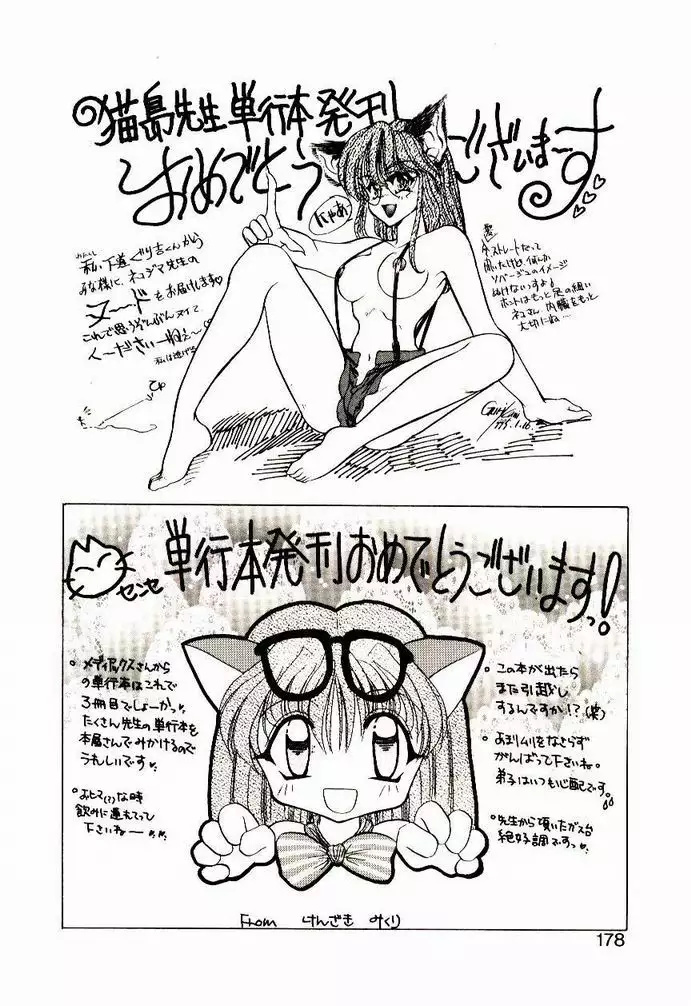 猫島先生単行本発刊
おめでとうございま〜す
にゃあ
私、下道ぐり吉くんから
みな様に、ネコジマ先生の
ヌードをお届けします
これで思うぞんぶんヌイて
く〜ださい〜ねぇ〜
私は逃げる
ストレートだって
聞いたけど、何んか
ソバージュのイメージ
ぬけないっすよ!
ホントはもっと足の細い
ネコさん、内臓をもっと
大切にね…
センセ
単行本発刊おめでとうございますっ!
メディアックスさんから
の単行本はこれで
3冊目でしょーか。
たくさん先生の単行本を
本屋さんでみかけるので
うれしいです
おヒマ(?)な時
飲みに連れてって
下さいねー
この本が出たら
また引越し
するんですか!?(笑)
あまりムリをなさらず
がんばって下さいね。
弟子はいつも心配です。
先生から頂いたガス台
絶好調ですっ
From けんざき みくり
178